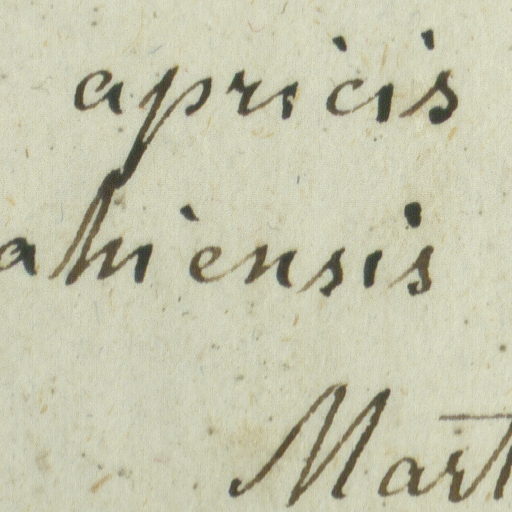 apricis
ahiensis
Mart